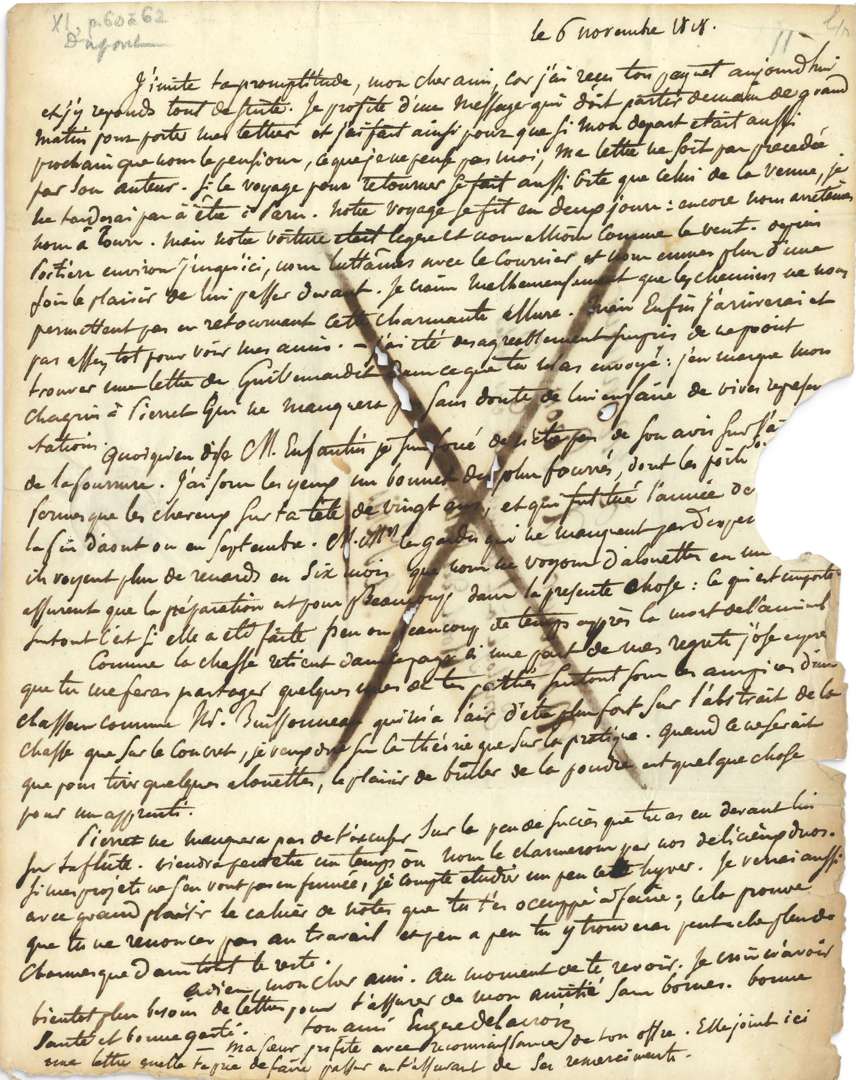 XI, p. 60 à 62
le 6 novembre 1818.
J'imite ta promptitude, mon cher ami, car j'ai reçu ton paquet aujourd'hui
et j'y reponds tout de suite. Je profite d'une Messager qui doit partir demain de grand
matin pour porter mes lettres et j'ai fait ainsi pour que si mon depart etait aussi
prochain que nous le pensions, ce que je ne pense pas moi, ma lettre ne soit pas precedée
par son auteur. Si le voyage pour retourner se fait aussi vite que celui de la venue, je
ne tarderai pas à être à Paris. Notre voyage se fit en deux jours : encore nous arretames
nous à Tours. Mais notre voiture etait legere et nous allions comme le vent. depuis
Poitiers environ jusqu'ici, nous luttâmes avec le Courrier et nous eumes plus d'une
fois le plaisir de lui passer devant. Je crains malheureusement que les chemins ne nous
permettent pas en retournant cette charmante allure. Mais Enfin j'arriverai et
pas assez tot pour voir mes amis. – j'ai été desagreablement surpris de ne point
trouver une lettre de Guillemardet dans ce que tu m'as envoyé : j'en marque mon
chagrin à Pierret qui ne manquera pas sans doute de lui en faire de vives represen
tations. Quoiqu'en dise M. Enfantin je suis de son avis sur
de la fourrure. J'ai sous les yeux un bonnet des plus fourrés, dont les poils
fermes que les cheveux sur ta tête de vingt ans, et qui fut tué l'année de
la fin d'aout ou en septembre. M.Mrs les gardes qui ne manquent pas d'expe
ils voyent plus de renards en six mois que nous ne voyons d'alouettes en un
assurent que la préparation est pour beaucoup dans la presente chose : ce qui est importe
surtout c'est si elle a eté faite peu ou beaucoup de temps apprès la mort de l'animal
Comme la chasse retient dans ce pays à une part de mes regrets j'ose espere
que tu me feras partager quelques unes de tes sur tout sous les auspices d'un
chasseur comme Mr. Buissonneau qui m'a l'air d'etre plus fort sur l'abstrait de la
chasse que sur le concret, je veux dire sur la théorie que sur la pratique. Quand ce ne serait
que pour tirer quelques alouettes, le plaisir de bruler de la poudre est quelque chose
pour un apprenti.
Pierret ne manquera pas de t'excuser sur le peu de succès que tu as eu devant lui
sur ta flute. viendra peut etre un temps où nous le charmerons par nos délicieux duos.
Si mes projets ne s'en vont pas en fumée, je compte etudier un peu cet hyver. Je verrai aussi
avec grand plaisir le cahier de notes que tu t'es occuppé à faire ; cela prouve
que tu ne renonces pas au travail et peu a peu tu y trouveras peut etre plus de
charmes que dans tout le reste.
Adieu, mon cher ami. Au moment de te revoir, je crois n'avoir
bientot plus besoin de lettres pour t'assurer de mon amitié sans bornes. bonne
santé et bonne gaité. ton ami Eugene delacroix
Ma soeur profite avec reconnaissance de ton offre. Elle joint ici
une lettre qu'elle te prie de faire passer en t'assurant de ses remerciments.